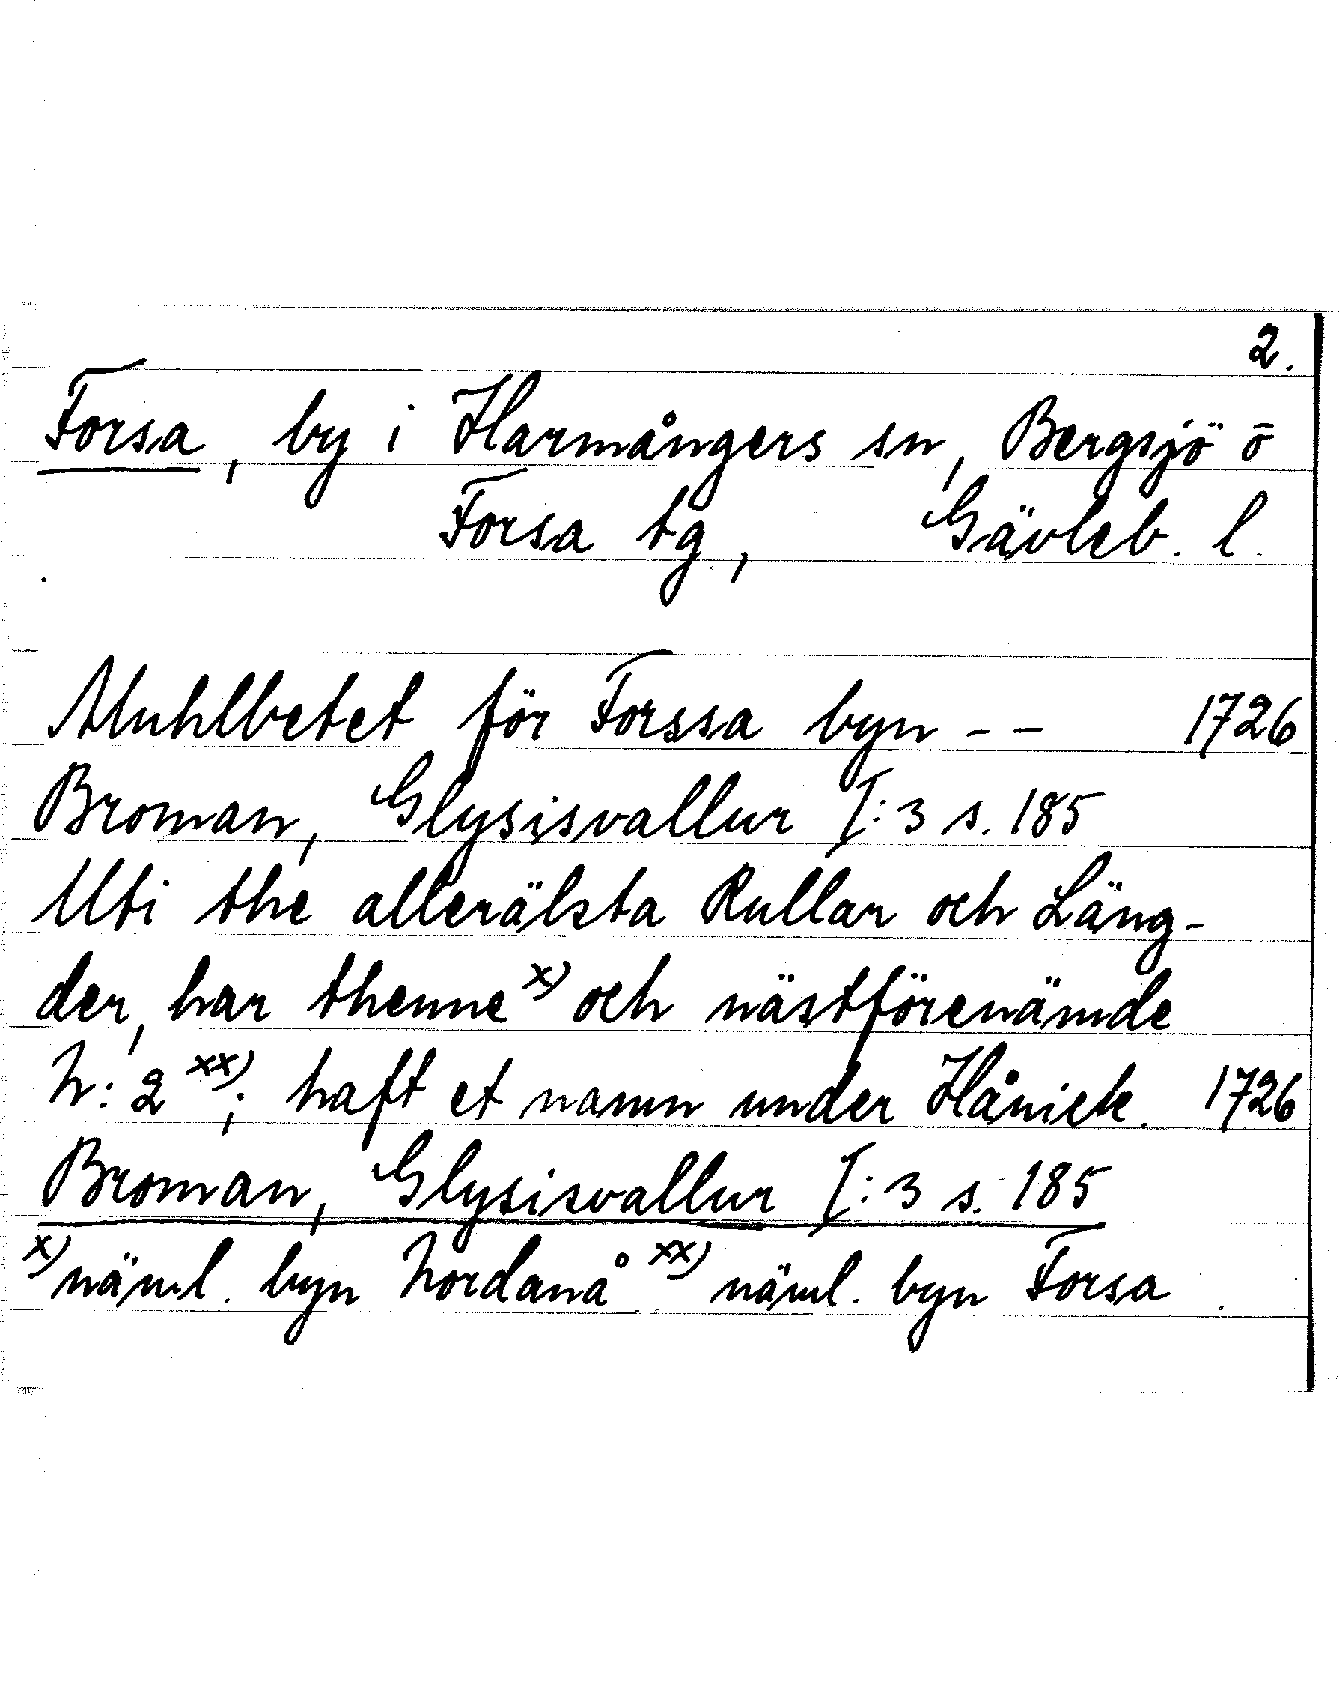 2.
Forsa, by i Harmångers sn, Bergsjö o
Forsa tg, Gävleb. l.
Muhlbetet för Forssa byn - - 1726
Broman, Glysisvallur I:3 s. 185
Uti the allerälsta Rullar och Läng-
der, har thenne x) och nästförenämde
N: 2 xx); haft et namn under Hånick. 1726
Broman, Glysisvallur I:3 s. 185
x) näml. byn Nordanå xx) näml. byn Forsa